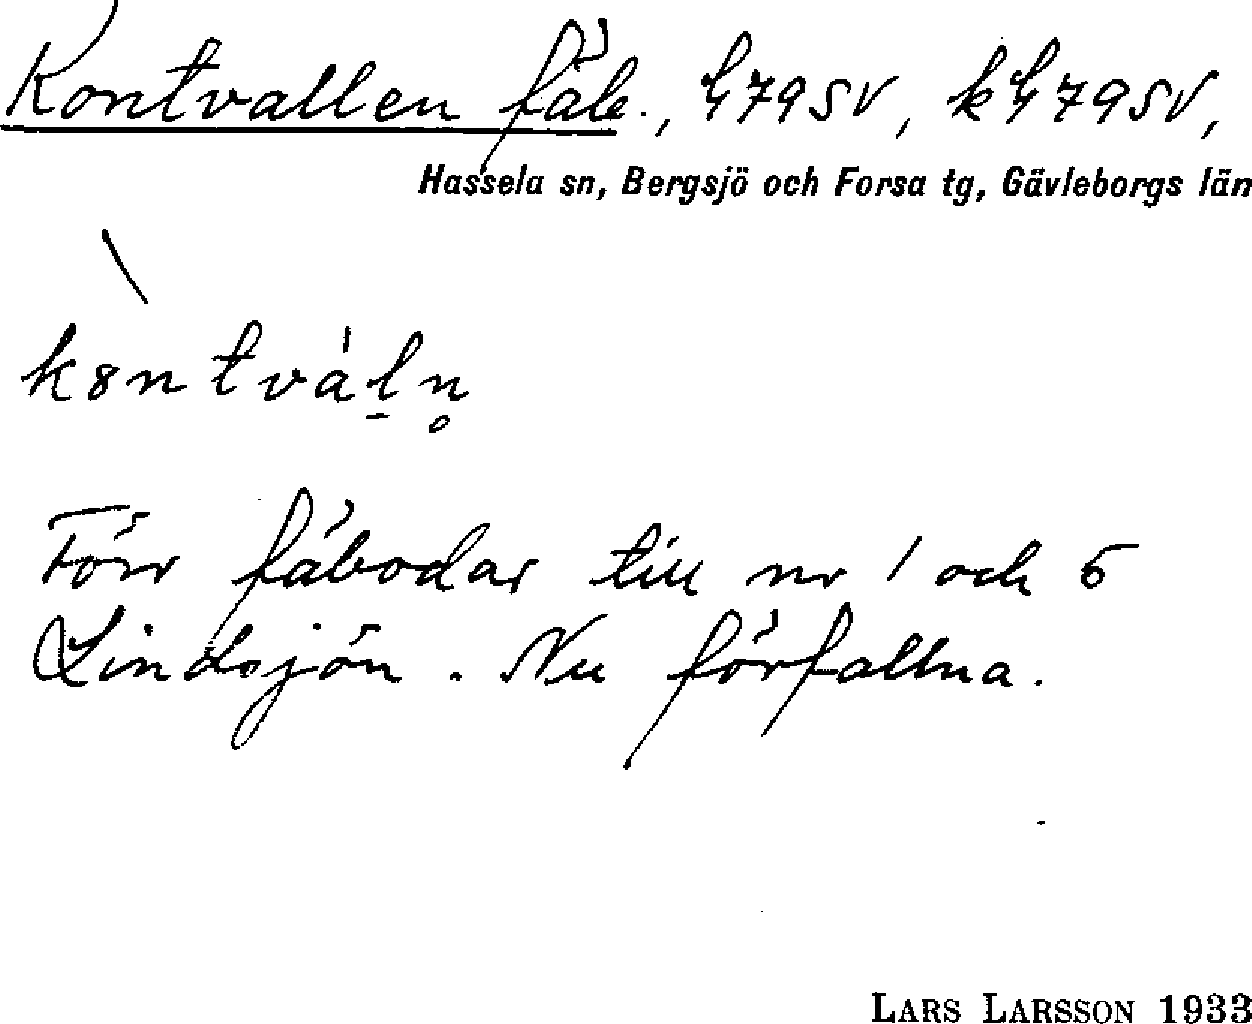 Kontvallen fäb., 4795V, k4795V,
Hassela sn, Bergsjö och Forsa tg, Gävleborgs län
Förr fäbodar till nr 1 och 5
Lindsjön. Nu förfallna.
LARS LARSSON 1933